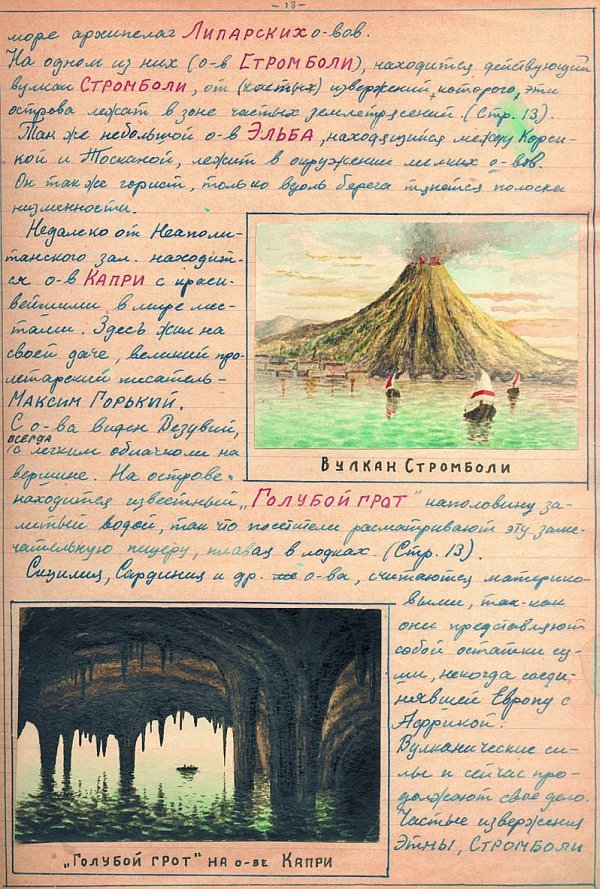 -18-
море архипелаг ЛИПАРСКИХ о-вов.
На одном из них (о-в СТРОМБОЛИ), находится действующий
вулкан СТРОМБОЛИ, от (частых) извержений, которого, эти
острова лежат в зоне частых землетрясений. (Стр. 13).
Так же небольшой о-в ЭЛЬБА, находящийся между Корси-
кой и Тосканой, лежит в окружении мелких о-вов.
Он так же горист, только вдоль берега тянется полоска
низменности.
Недалеко от Неаполи-
танского зал. находит-
ся о-в КАПРИ с краси-
вейшими в мире мес-
тами. Здесь жил на
своей даче, великий про-
летарский писатель-
МАКСИМ ГОРЬКИЙ.
С о-ва виден Везувий,
ВСЕГДА
с легким облачком на
вершине. На острове
ВУЛКАН СТРОМБОЛИ
находится известный „ГОЛУБОЙ ГРОТ" наполовину за-
литый водой, так что посетители расматривают эту заме-
чательную пещеру, плавая в лодках. (Стр. 13).
Сицилия, Сардиния и др. о-ва, считаются материко-
выми, так-как
они представляют
собой остатки су-
ши, некогда соеди-
нявшей Европу с
Африкой.
Вулканические си-
лы и сейчас про-
должают свое дело.
Частые извержения
ЭТНЫ, СТРОМБОЛИ
„ГОЛУБОЙ ГРОТ" НА О-ВЕ КАПРИ